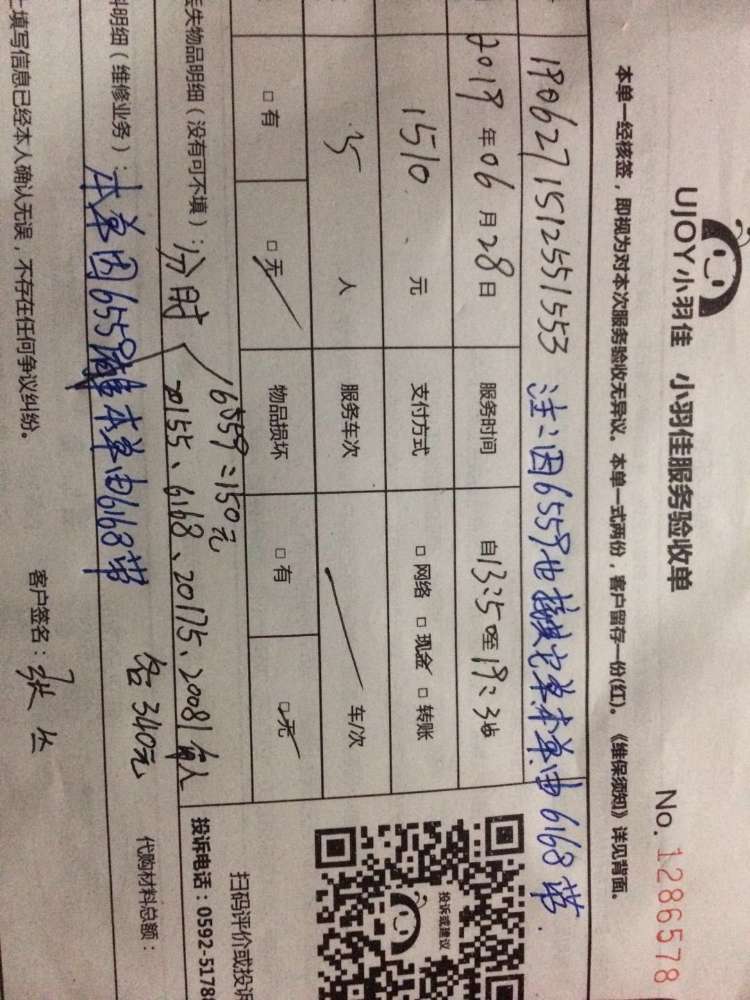 UJOY小羽佳 小羽佳服务验收单
No. 1286578
本单一经核签，即视为对本次服务验收无异议。本单一式两份，客户留存一份(红)。《维保须知》详见背面。
19062715125515 53 注：因6559也接其它单本单由6168带
2019年06月28日 服务时间 自13:50至19:30
1510.元 支付方式 □网络 □现金 □转账
5人 服务车次 车/次
□有 □无 物品损坏 □有 □无
丢失物品明细（没有可不填）：分时
6559：150元
20155、6168、20175、20081每人
各340元
料明细（维修业务）：本单因6559 本单由6168带
代购材料总额：
上填写信息已经本人确认无误，不存在任何争议纠纷。
客户签名：张丛
投诉或建议
扫码评价或投诉
投诉电话：0592-5178